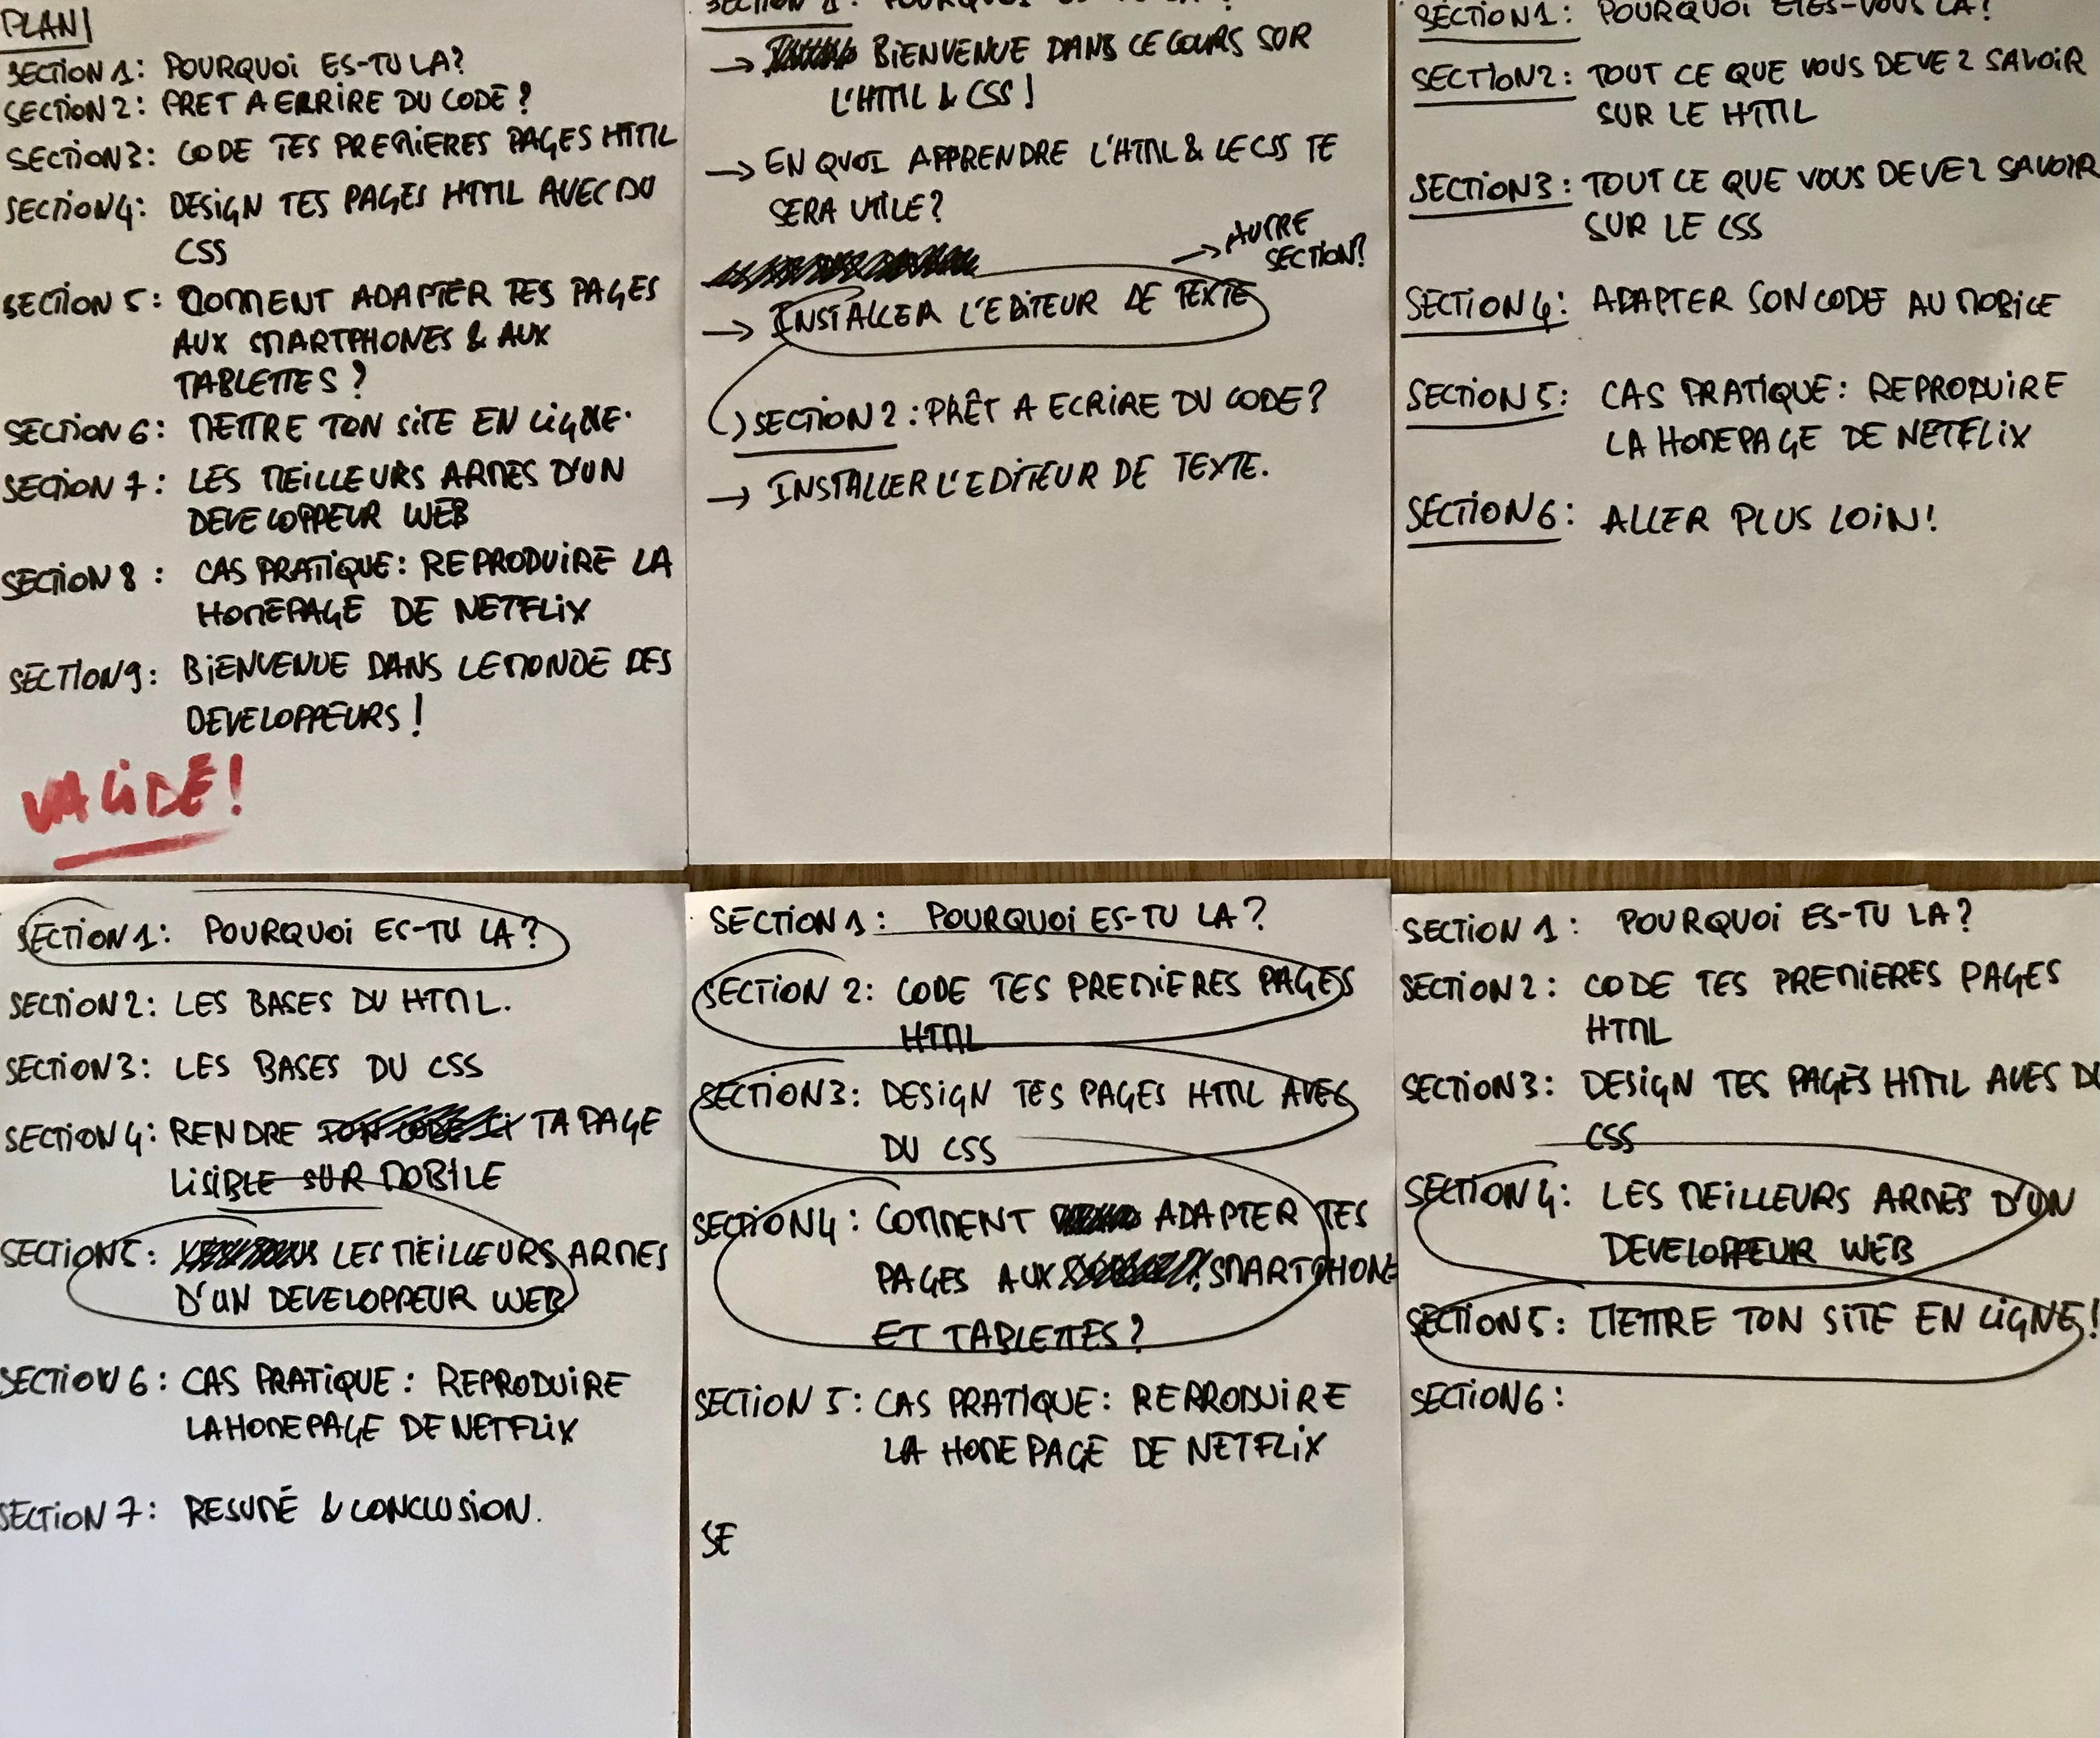 PLAN
SECTION 1: POURQUOI ES-TU LA?
SECTION 2: PRET A ERRIRE DU CODE?
SECTION 3: CODE TES PREMIERES PAGES HTML
SECTION 4: DESIGN TES PAGES HTML AVEC DU
CSS
SECTION 5: COMMENT ADAPTER TES PAGES
AUX SMARTPHONES & AUX
TABLETTES?
SECTION 6: METTRE TON SITE EN LIGNE.
SECTION 7: LES MEILLEURS ARMES D'UN
DEVELOPPEUR WEB
SECTION 8: CAS PRATIQUE: REPRODUIRE LA
HOMEPAGE DE NETFLIX
SECTION 9: BIENVENUE DANS LE MONDE DES
DEVELOPPEURS!
VALIDÉ!
SECTION 1: POURQUOI ES-TU LA?
→ BIENVENUE DANS CE COURS SUR
L'HTML & CSS!
→ EN QUOI APPRENDRE L'HTML & LE CSS TE
SERA UTILE?
→ AUTRE
SECTION?
→ INSTALLER L'EDITEUR DE TEXTE
SECTION 2: PRÊT A ECRIRE DU CODE?
→ INSTALLER L'EDITEUR DE TEXTE.
SECTION 1: POURQUOI ETES-VOUS LA?
SECTION 2: TOUT CE QUE VOUS DEVEZ SAVOIR
SUR LE HTML
SECTION 3: TOUT CE QUE VOUS DEVEZ SAVOIR
SUR LE CSS
SECTION 4: ADAPTER SON CODE AU MOBILE
SECTION 5: CAS PRATIQUE: REPRODUIRE
LA HOMEPAGE DE NETFLIX
SECTION 6: ALLER PLUS LOIN!
SECTION 1: POURQUOI ES-TU LA?
SECTION 2: LES BASES DU HTML.
SECTION 3: LES BASES DU CSS
SECTION 4: RENDRE TON CODE TA PAGE
LISIBLE SUR MOBILE
SECTION 5: LES MEILLEURS ARMES
D'UN DEVELOPPEUR WEB
SECTION 6: CAS PRATIQUE: REPRODUIRE
LA HOMEPAGE DE NETFLIX
SECTION 7: RESUMÉ & CONCLUSION.
SECTION 1: POURQUOI ES-TU LA?
SECTION 2: CODE TES PREMIERES PAGES
HTML
SECTION 3: DESIGN TES PAGES HTML AVEC
DU CSS
SECTION 4: COMMENT ADAPTER TES
PAGES AUX SMARTPHONE
ET TABLETTES?
SECTION 5: CAS PRATIQUE: REPRODUIRE
LA HOMEPAGE DE NETFLIX
SE
SECTION 1: POURQUOI ES-TU LA?
SECTION 2: CODE TES PREMIERES PAGES
HTML
SECTION 3: DESIGN TES PAGES HTML AVES DU
CSS
SECTION 4: LES MEILLEURS ARMES D'UN
DEVELOPPEUR WEB
SECTION 5: METTRE TON SITE EN LIGNE!
SECTION 6: